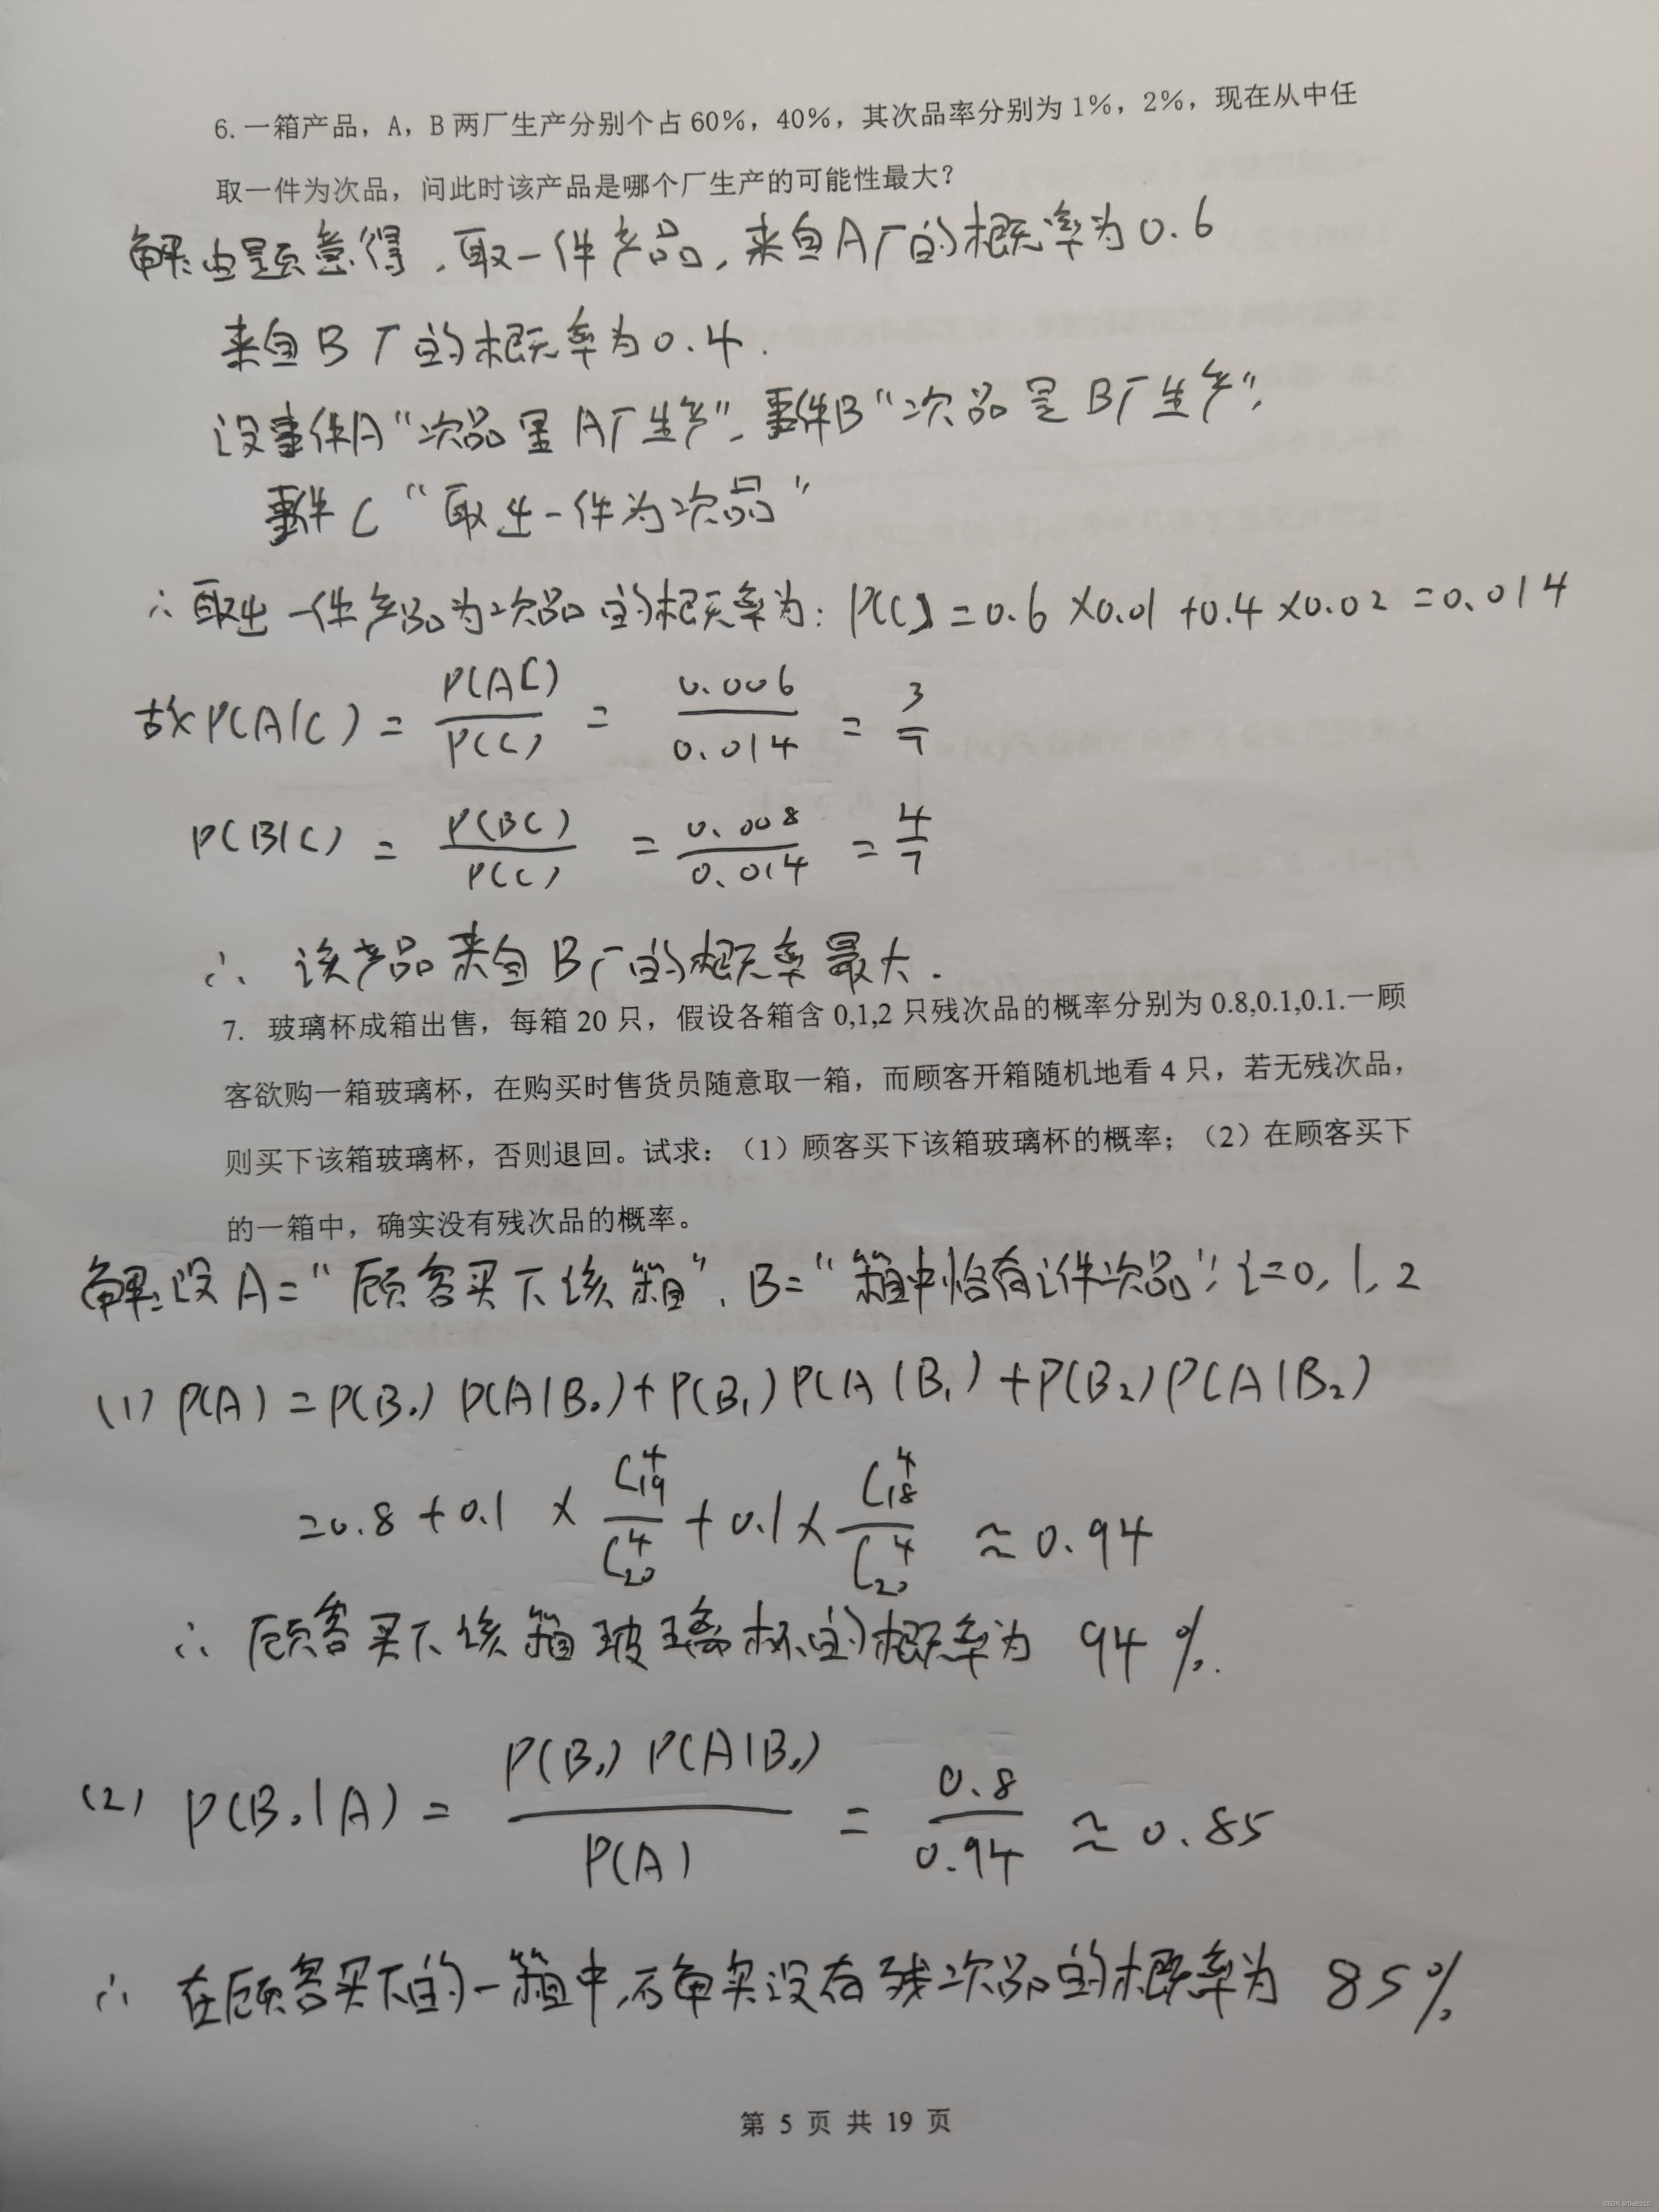 6. 一箱产品，A，B 两厂生产分别个占 60%，40%，其次品率分别为 1%，2%，现在从中任
取一件为次品，问此时该产品是哪个厂生产的可能性最大？
解：由题意得，取一件产品，来自A厂的概率为0.6
来自B厂的概率为0.4.
设事件A“次品是A厂生产”，事件B“次品是B厂生产”，
事件C“取出一件为次品”
∴取出一件产品为次品的概率为：P(C)=0.6×0.01+0.4×0.02=0.014
故P(A|C)=P(AC)/P(C)=0.006/0.014=3/7
P(B|C)=P(BC)/P(C)=0.008/0.014=4/7
∴该产品来自B厂的概率最大.
7. 玻璃杯成箱出售，每箱 20 只，假设各箱含 0,1,2 只残次品的概率分别为 0.8,0.1,0.1.一顾
客欲购一箱玻璃杯，在购买时售货员随意取一箱，而顾客开箱随机地看 4 只，若无残次品，
则买下该箱玻璃杯，否则退回。试求：（1）顾客买下该箱玻璃杯的概率；（2）在顾客买下
的一箱中，确实没有残次品的概率。
解：设A=“顾客买下该箱”，B=“箱中恰有i件次品”，i=0,1,2
(1) P(A)=P(B₀)P(A|B₀)+P(B₁)P(A|B₁)+P(B₂)P(A|B₂)
=0.8+0.1×C₁₉⁴/C₂₀⁴+0.1×C₁₈⁴/C₂₀⁴≈0.94
∴顾客买下该箱玻璃杯的概率为94%.
(2) P(B₀|A)=P(B₀)P(A|B₀)/P(A)=0.8/0.94≈0.85
∴在顾客买下的一箱中，确实没有残次品的概率为85%
第 5 页 共 19 页
CSDN @DuB210